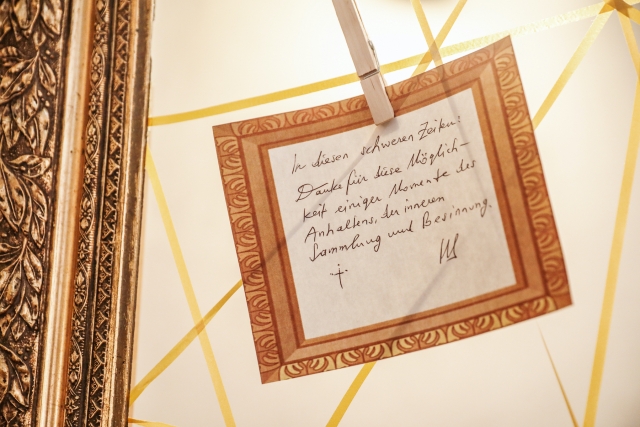 In diesen schweren Zeiten:
Danke für diese Möglich-
keit einiger Momente des
Anhaltens, der inneren
Sammlung und Besinnung.